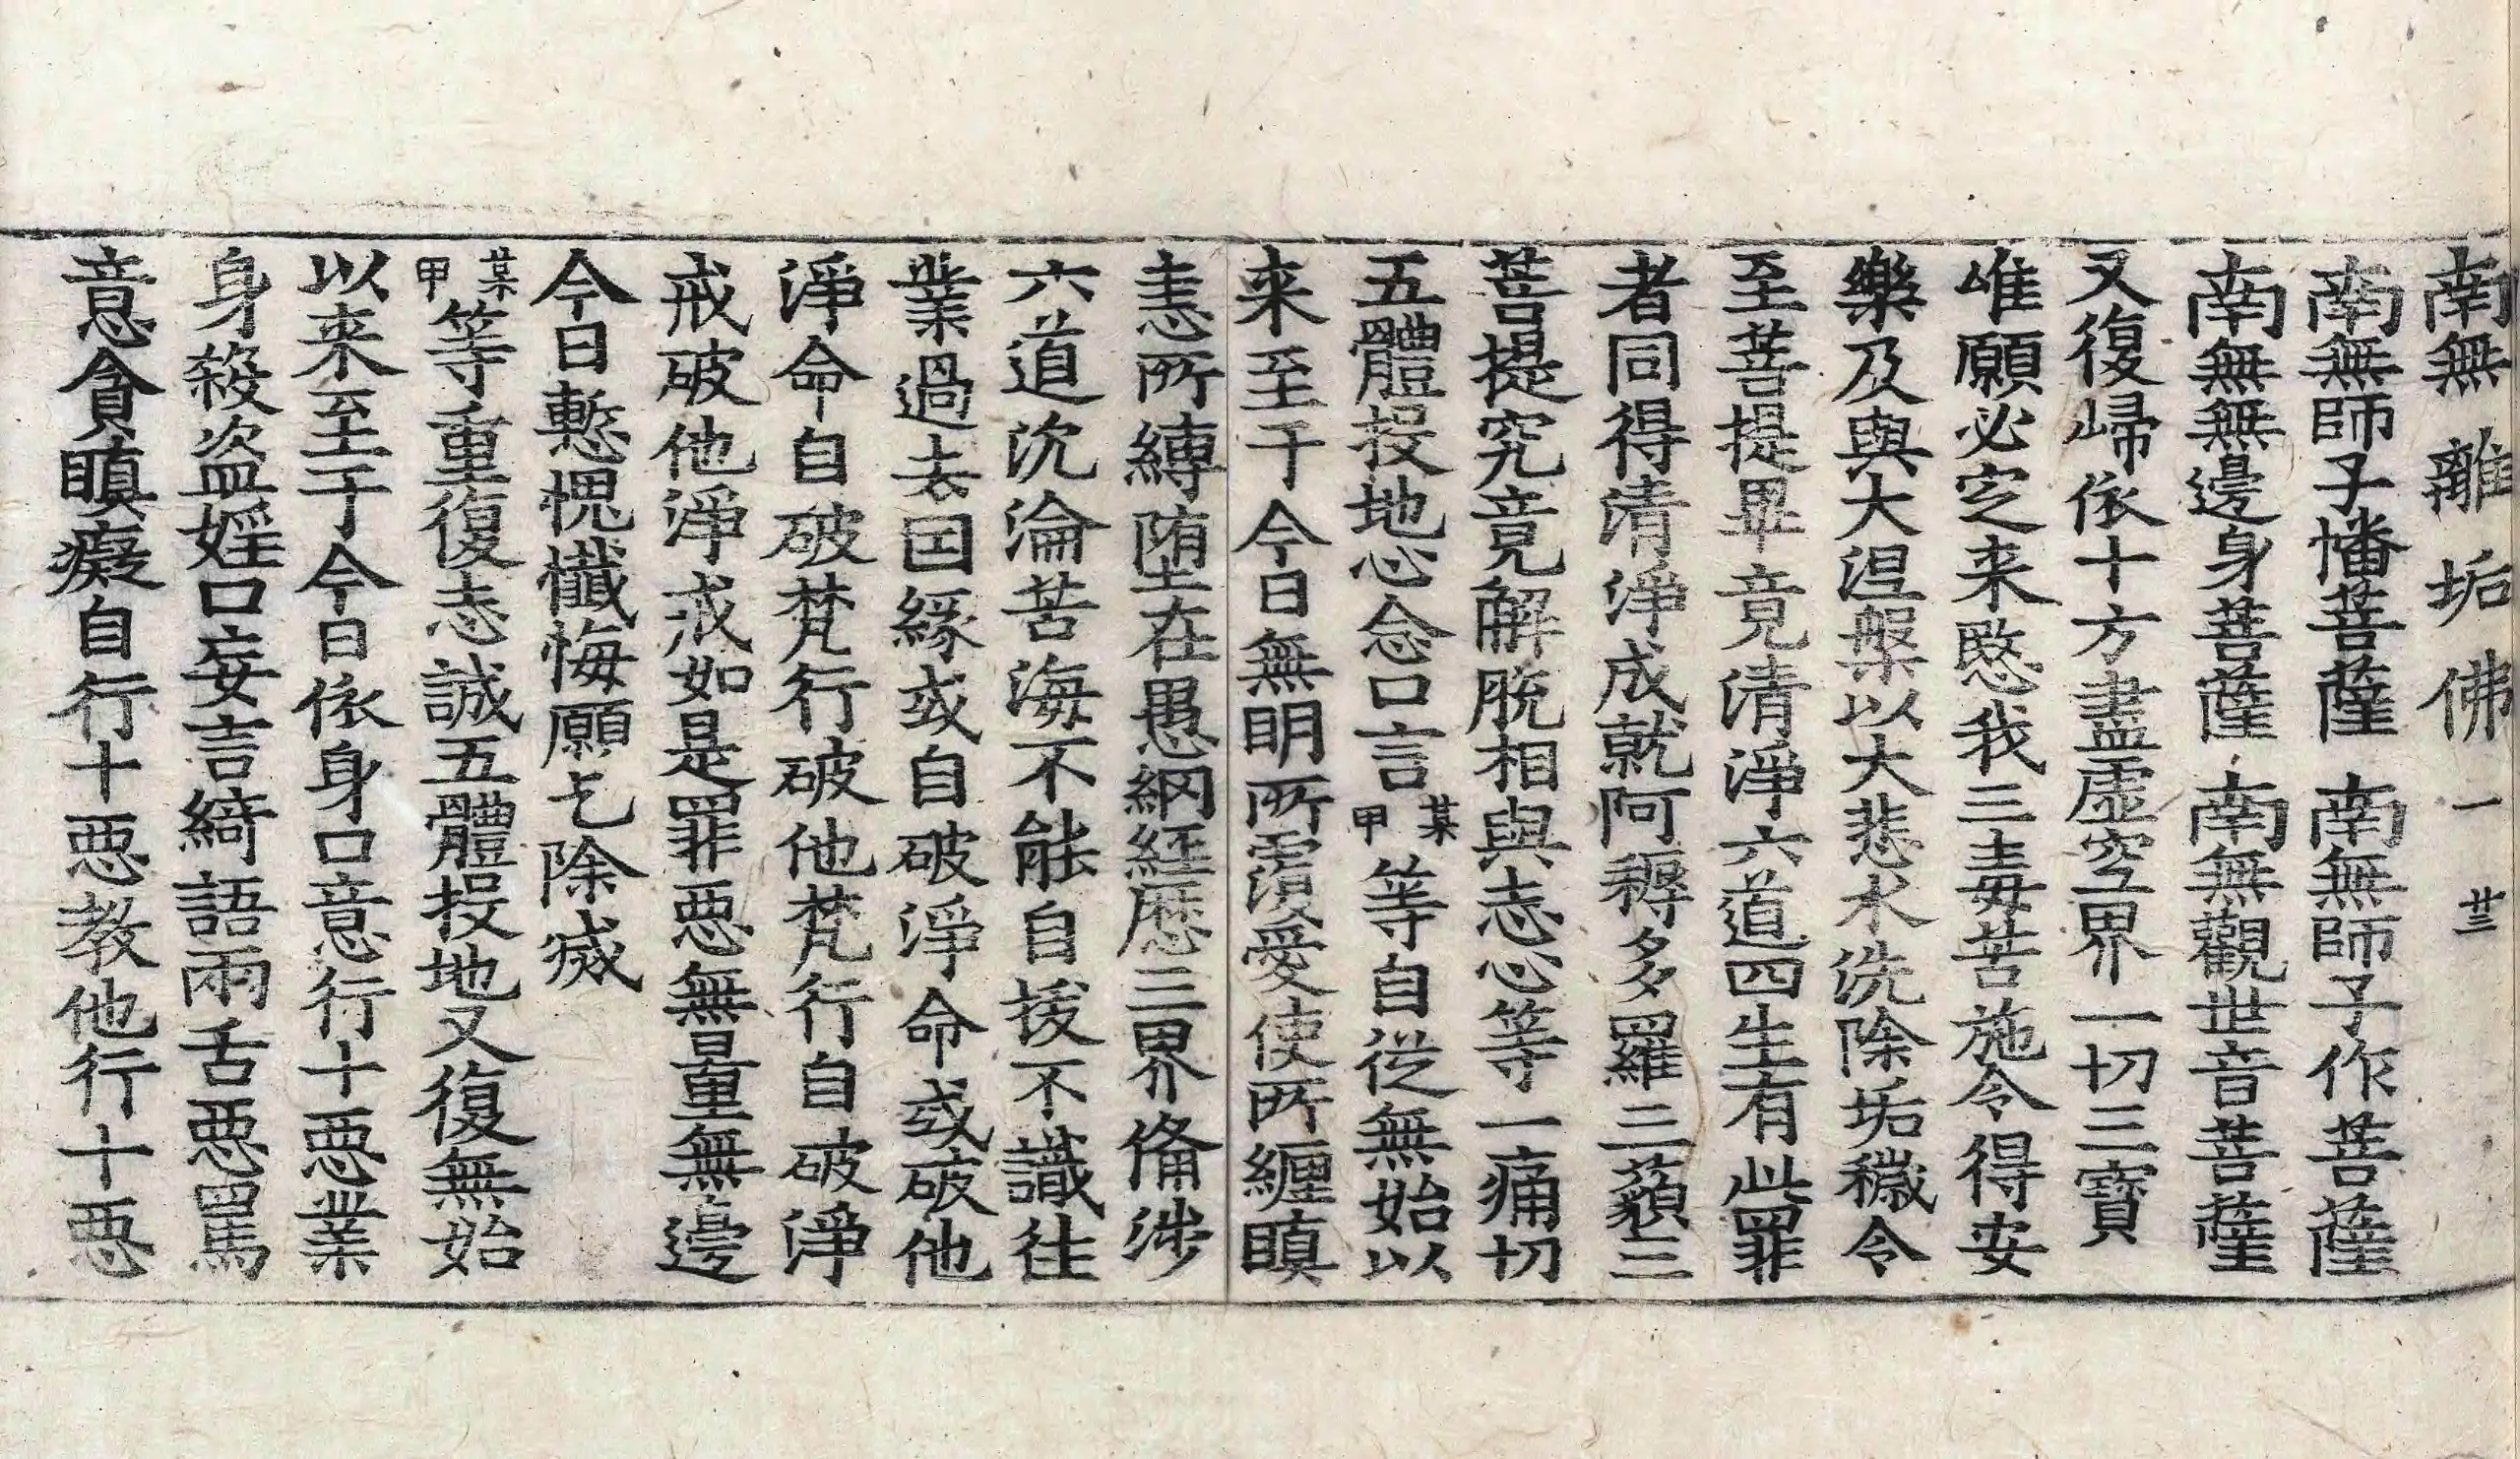 南無離垢佛 一 卅三
南無師子幡菩薩 南無師子作菩薩
南無無邊身菩薩 南無觀世音菩薩
又復歸依十方盡虛空界一切三寶
唯願必定来愍我三毒苦施令得安
樂及與大涅槃以大悲水洗除垢穢令
至菩提畢竟清淨六道四生有此罪
者同得清淨成就阿耨多羅三藐三
菩提究竟解脫相與志心等一痛切
五體投地心念口言某甲等自從無始以
来至于今日無明所覆愛使所纏瞋
恚所縛堕在愚網經歷三界俻涉
六道沉淪苦海不能自拔不識往
業過去因緣或自破淨命或破他
淨命自破梵行破他梵行自破淨
戒破他淨戒如是罪惡無量無邊
今日慙愧懺悔願乞除滅
某甲等重復志誠五體投地又復無始
以来至于今日依身口意行十惡業
身殺盗婬口妄言綺語兩舌惡罵
意貪瞋癡自行十惡教他行十惡